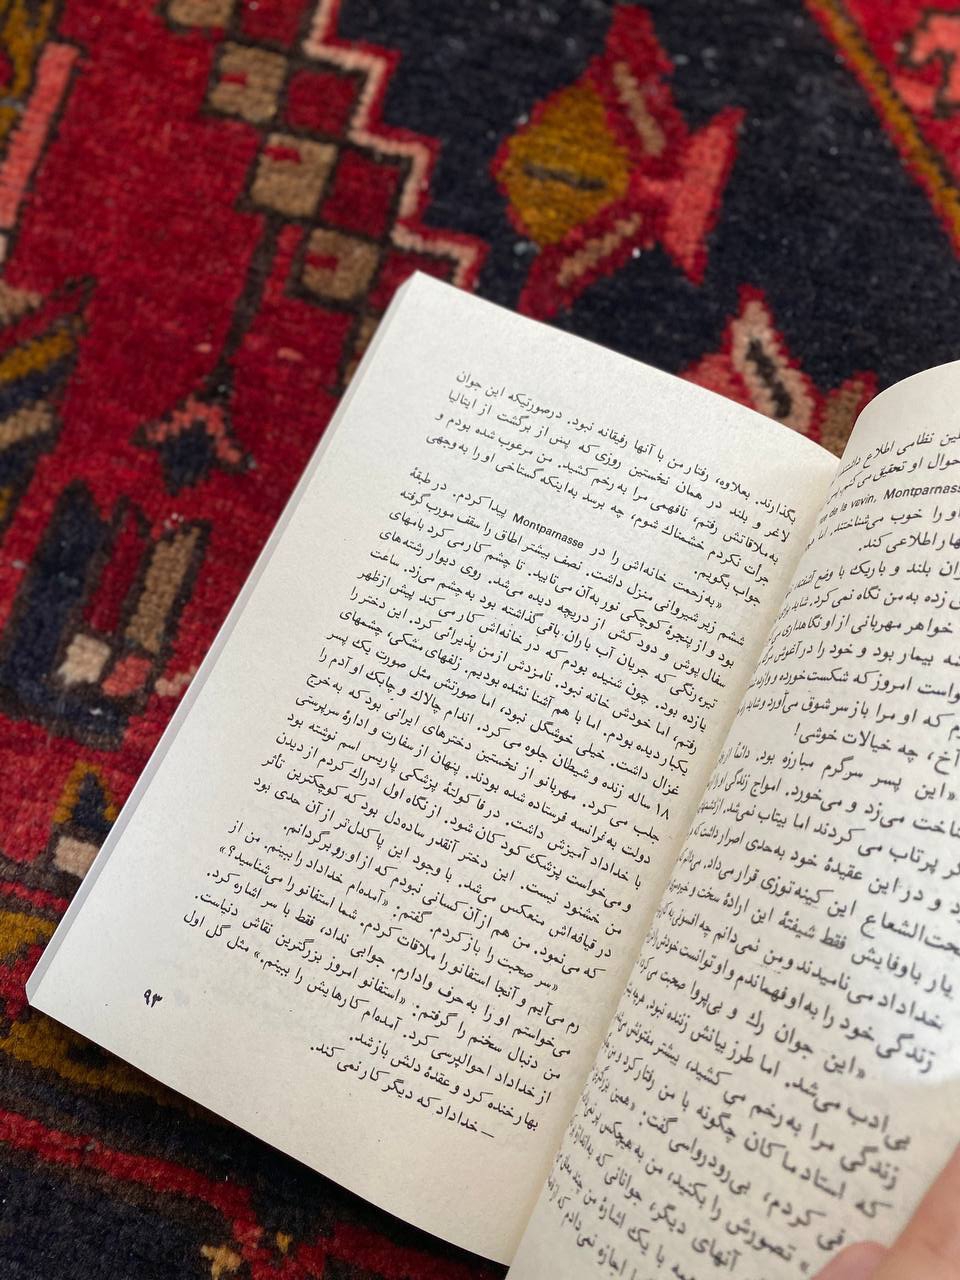 بگذارند. بعلاوه، رفتار من با آنها رفیقانه نبود. درصورتیکه این جوان
لاغر و بلند در همان نخستین روزی که پس از برگشت از ایتالیا
به ملاقاتش رفتم، نافهمی مرا به رخم کشید. من مرعوب شده بودم و
جرأت نکردم خشمناك شوم، چه برسد به اینکه گستاخی او را به وجهی
جواب بگویم.
«به زحمت خانه‌اش را در Montparnasse پیدا کردم. در طبقهٔ
ششم زیر شیروانی منزل داشت. نصف بیشتر اطاق را سقف مورب گرفته
بود و از پنجرهٔ کوچکی نور به آن می‌تابید. تا چشم کار می‌کرد بامهای
سفال پوش و دودکش از دریچه دیده می‌شد. روی دیوار رشته‌های
تیره‌رنگی که جریان آب باران، باقی گذاشته بود به چشم می‌زد. ساعت
یازده بود. چون شنیده بودم که در خانه‌اش کار می‌کند پیش از ظهر
رفتم، اما خودش خانه نبود. نامزدش از من پذیرائی کرد. این دختر را
یکبار دیده بودم. اما با هم آشنا نشده بودیم. زلفهای مشکی، چشمهای
غزال داشت. خیلی خوشگل نبود، اما صورتش مثل صورت یك پسر
۱۸ ساله زنده و شیطان جلوه می‌کرد. اندام چالاك و چابك او آدم را
جلب می‌کرد. مهربانو از نخستین دخترهای ایرانی بود که به خرج
دولت به فرانسه فرستاده شده بودند. پنهان از سفارت و ادارهٔ سرپرستی
با خداداد آمیزش داشت. در فاکولتهٔ پزشکی پاریس اسم نوشته بود
و می‌خواست پزشك کودکان شود. از نگاه اول ادراك کردم از دیدن
من خشنود نیست. این دختر آنقدر ساده‌دل بود که کوچکترین تأثر
در قیافه‌اش منعکس می‌شد. با وجود این پاکدل‌تر از آن حدی بود
که می‌نمود. من هم از آن کسانی نبودم که از او رو برگردانم.
«سر صحبت را باز کردم. گفتم: «آمده‌ام خداداد را ببینم. من از
رم می‌آیم و آنجا استفانو را ملاقات کردم. شما استفانو را می‌شناسید؟»
می‌خواستم او را به حرف وادارم. جوابی نداد، فقط با سر اشاره کرد.
من دنبال سخنم را گرفتم: «استفانو امروز بزرگترین نقاش دنیاست.
از خداداد احوالپرسی کرد. آمده‌ام کارهایش را ببینم.» مثل گل اول
بهار خنده کرد و عقدهٔ دلش باز شد.
— خداداد که دیگر کار نمی‌کند.
۹۳
نظامی اطلاع
حوال او تحقیق می‌کنم
de la vavin, Montparnasse
او را خوب می‌شناختند. اما
اظهار اطلاعی کند.
بلند و باریك با وضع آشفته
زده به من نگاه نمی‌کرد. شاید
خواهر مهربانی از او نگاهداری
بیمار بود و خود را در آغوش
امروز که شکست خورده و
که او مرا باز سر شوق می‌آورد و شاید
آخ، چه خیالات خوشی!
«این پسر سرگرم مبارزه بود. دائماً
می‌زد و می‌خورد. امواج زندگی او را
پرتاب می‌کردند اما بیتاب نمی‌شد.
و در این عقیدهٔ خود به حدی اصرار داشت که
تحت‌الشعاع این کینه‌توزی قرار می‌داد.
یار باوفایش فقط شیفتهٔ این ارادهٔ سخت و
خداداد می‌نامیدند و من نمی‌دانم چه افسونی
زندگی خود را به او فهماندم و او توانست خودش را
«این جوان رك و بی‌پروا صحبت می‌کرد
بی‌ادب می‌شد. اما طرز بیانش زننده نبود.
زندگی مرا به رخم می‌کشید، بیشتر مفتونش
که استاد ماکان چگونه با من رفتار کرد و
می‌کردم، بی‌رودرواسی گفت: «همین بزرگترین
تصورش را بکنید، من به هیچکس
آنهای دیگر، جوانانی که به اندازه
با یك اشارهٔ من
اجازه نمی‌دادم که